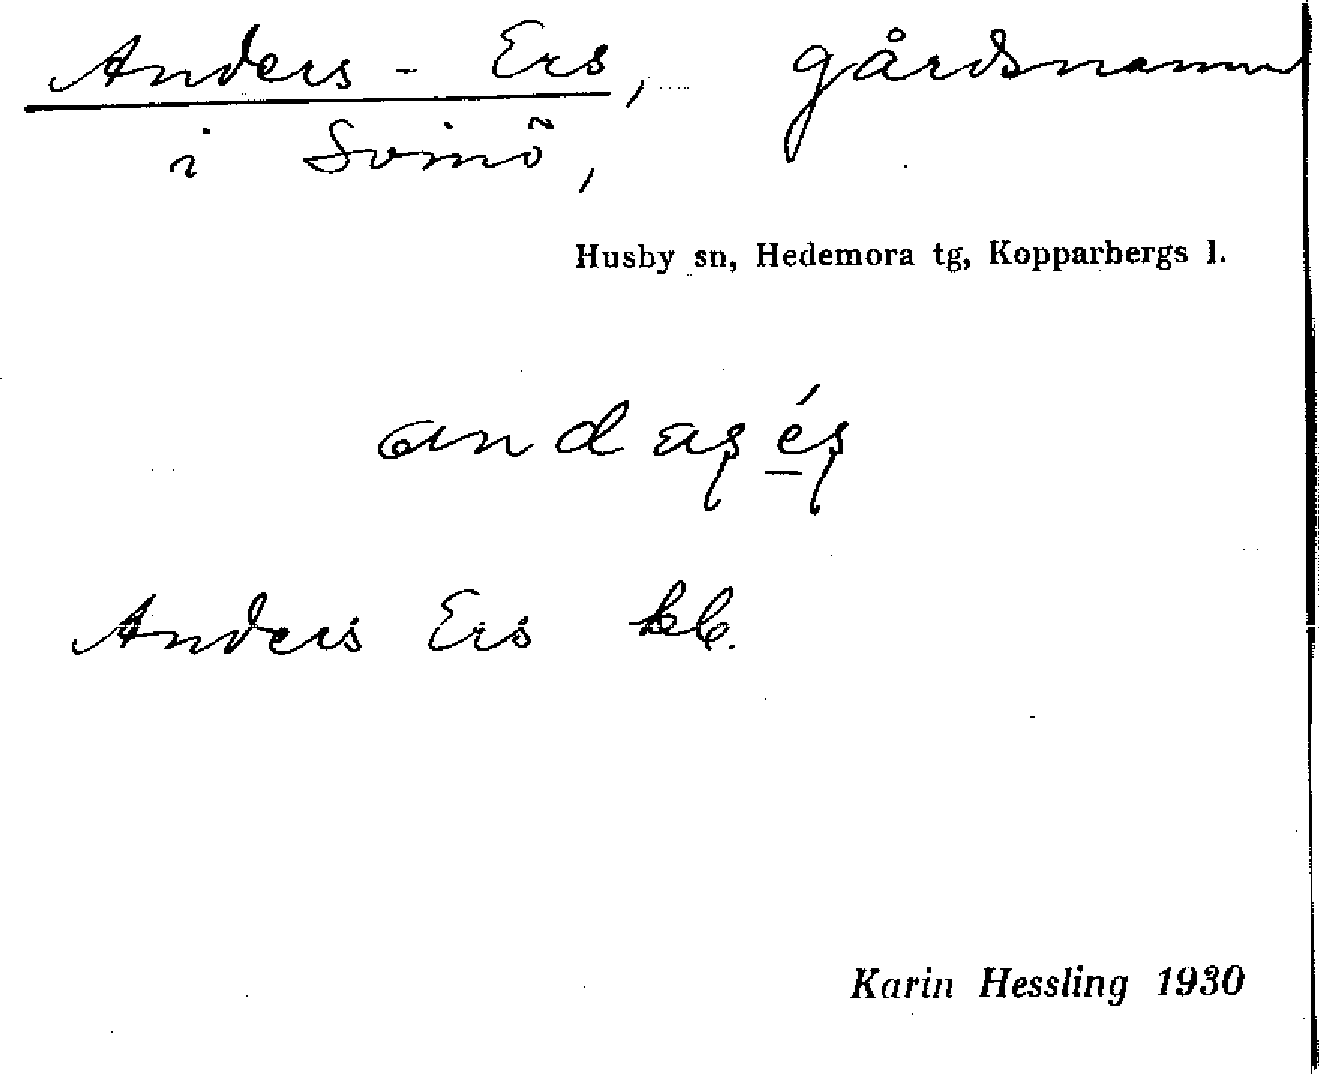 Anders-Ers, gårdsnamn
i Svinö,
Husby sn, Hedemora tg, Kopparbergs l.
andaʂ éʂ
Anders Ers kb.
Karin Hessling 1930